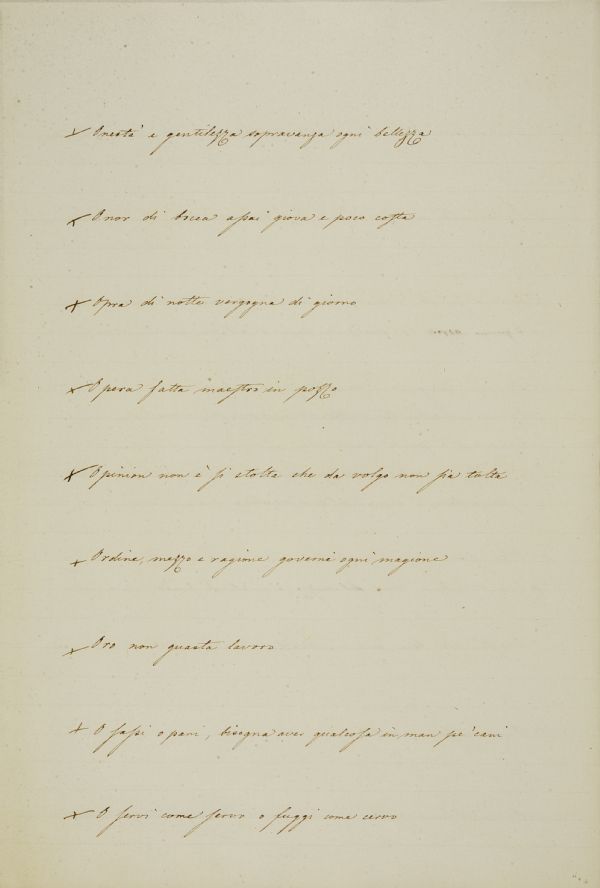 Onestà e gentilezza sopravanza ogni bellezza
Onor di bocca assai giova e poco costa
Opra di notte vergogna di giorno
Opera fatta maestro in pozzo
Opinion non è sì stolta che da volgo non sia tolta
Ordine, mezzo e ragione governi ogni magione
Oro non guasta lavoro
O sassi o pani, bisogna aver qualcossa in man pe' cani
O servi come servo o fuggi come cervo